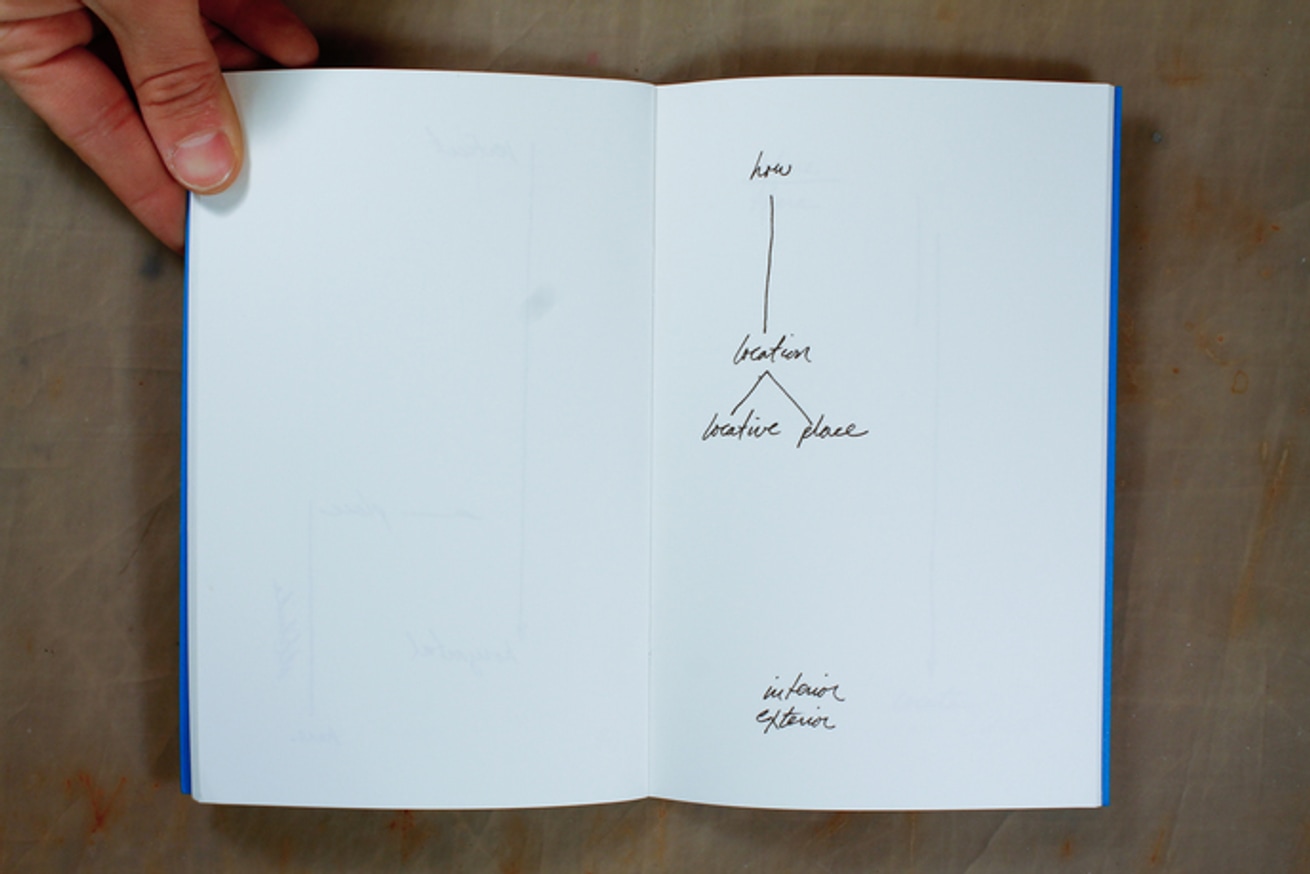 how
location
locative place
interior
exterior